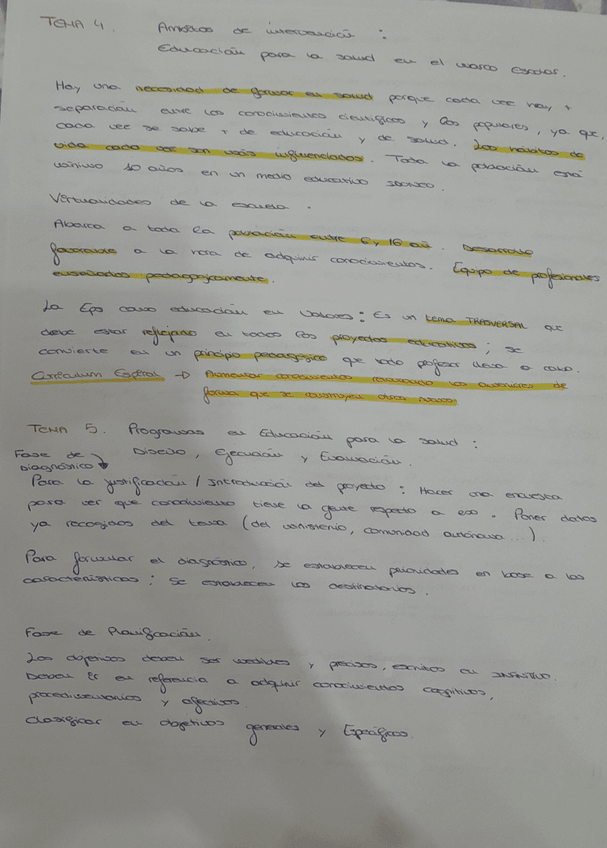 TEMA 4. Ámbitos de intervención :
Educación para la salud en el marco escolar.
Hay una necesidad de formar en salud porque cada vez hay +
separación entre los conocimientos científicos y los populares, ya que,
cada vez se sabe + de educación y de salud. Los hábitos de
vida cada vez son más influenciados. Toda la población está
mínimo 10 años en un medio educativo idóneo.
Virtualidades de la escuela.
Abarca a toda la población entre 6 y 16 añ. Desarrollo
favorable a la hora de adquirir conocimientos. Equipo de profesionales
enseñados pedagógicamente.
La Eps como educación en valores: Es un tema TRANVERSAL que
debe estar reflejado en todos los proyectos educativos; se
convierte en un principio pedagógico que todo profesor lleva a cabo.
Currículum Espiral → Aumentar conocimientos retomando los anteriores de
forma que se construyen otros nuevos
TEMA 5. Programas en Educación para la salud :
Diseño, Ejecución y Evaluación.
Fase de
Diagnóstico
Para la justificación / Introducción del proyecto : Hacer una encuesta
para ver que conocimiento tiene la gente respecto a eso. Poner datos
ya recogidos del tema (del ministerio, comunidad autónoma...).
Para formular el diagnóstico, se establecen prioridades en base a las
características; se establecen los destinatarios.
Fase de Planificación.
Los objetivos deben ser medibles y precisos, escritos en INFINITIVO.
Deben en referencia a adquirir conocimientos cognitivos,
y afectivos.
Clasificar en objetivos generales y Específicos.